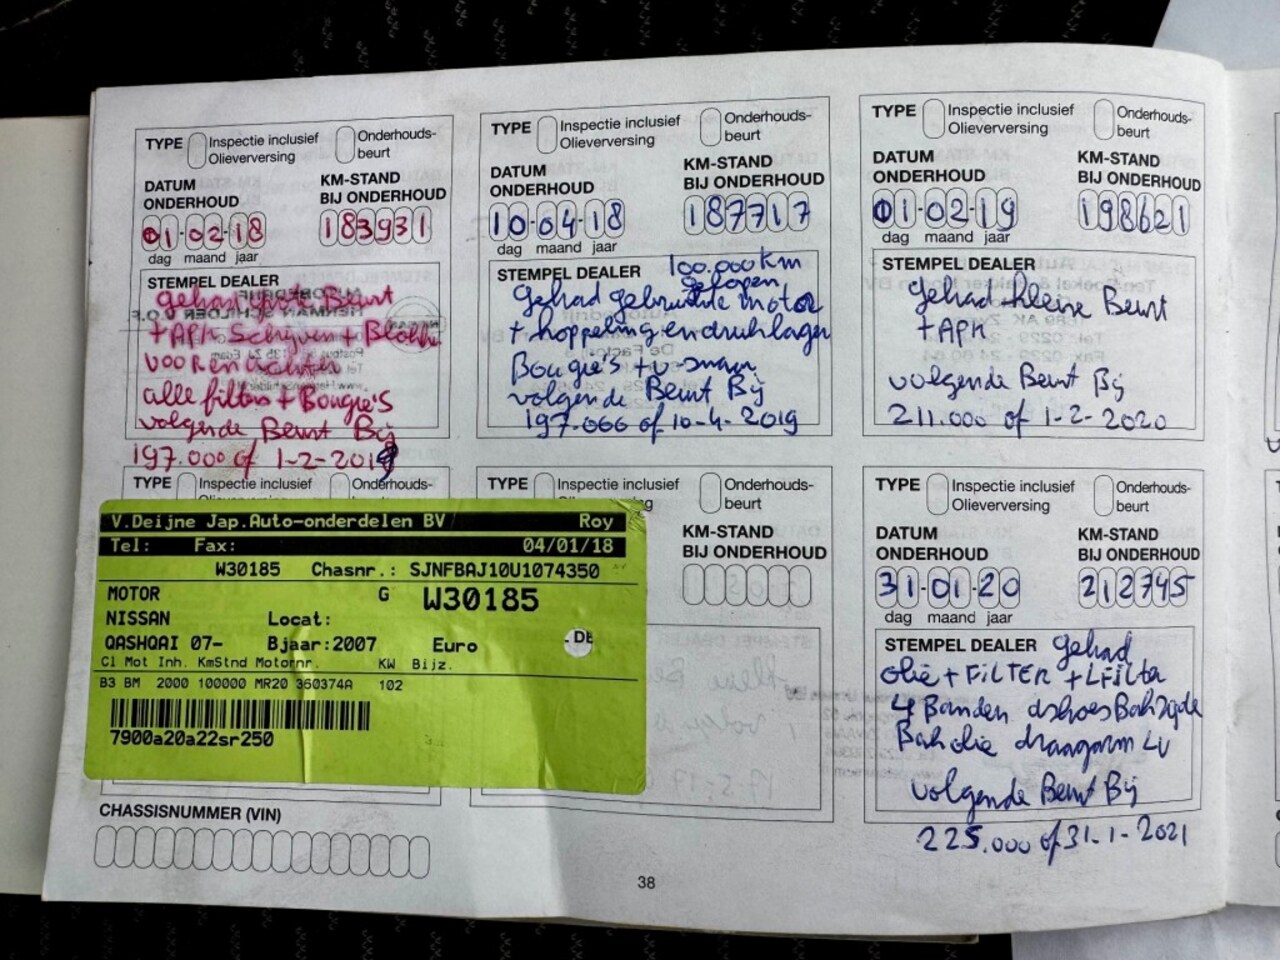 TYPE Inspectie inclusief Olieverversing Onderhouds-beurt
DATUM ONDERHOUD KM-STAND BIJ ONDERHOUD
01-02-18 183931
dag maand jaar
STEMPEL DEALER
gehad Beurt
+ APK Schijven + Blokken
voor en achter
alle filters + Bougie's
volgende Beurt Bij
197.000 of 1-2-2019
TYPE Inspectie inclusief Olieverversing Onderhouds-beurt
DATUM ONDERHOUD KM-STAND BIJ ONDERHOUD
10-04-18 187717
dag maand jaar
STEMPEL DEALER 100.000 km
gelopen
gehad gebruikte motor
+ koppeling en druklager
Bougie's + v-snaar
volgende Beurt Bij
197.000 of 10-4-2019
TYPE Inspectie inclusief Olieverversing Onderhouds-beurt
DATUM ONDERHOUD KM-STAND BIJ ONDERHOUD
01-02-19 198621
dag maand jaar
STEMPEL DEALER
gehad kleine Beurt
+ APK
volgende Beurt Bij
211.000 of 1-2-2020
TYPE Inspectie inclusief Onderhouds-
V.Deijne Jap.Auto-onderdelen BV Roy
Tel: Fax: 04/01/18
W30185 Chasnr.: SJNFBAJ10U1074350
MOTOR G W30185
NISSAN Locat:
QASHQAI 07- Bjaar:2007 Euro - DE
Cl Mot Inh. KmStnd Motornr. KW Bijz.
B3 BM 2000 100000 MR20 360374A 102
7900a20a22sr250
TYPE Inspectie inclusief Onderhouds-beurt
KM-STAND BIJ ONDERHOUD
TYPE Inspectie inclusief Olieverversing Onderhouds-beurt
DATUM ONDERHOUD KM-STAND BIJ ONDERHOUD
31-01-20 212745
dag maand jaar
STEMPEL DEALER gehad
olie + FILTER + LFilter
4 Banden
Bak olie draagarm LV
volgende Beurt Bij
225.000 of 31-1-2021
CHASSISNUMMER (VIN)
38